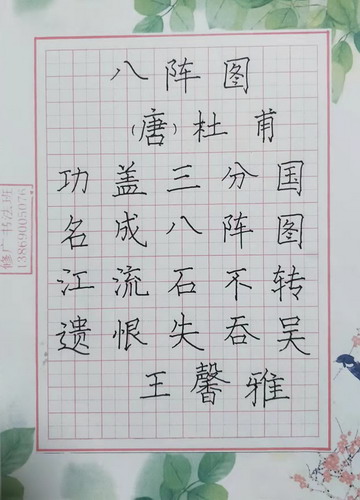 八阵图
（唐）杜甫
功盖三分国
名成八阵图
江流石不转
遗恨失吞吴
王馨雅
修广书法班
13869005076